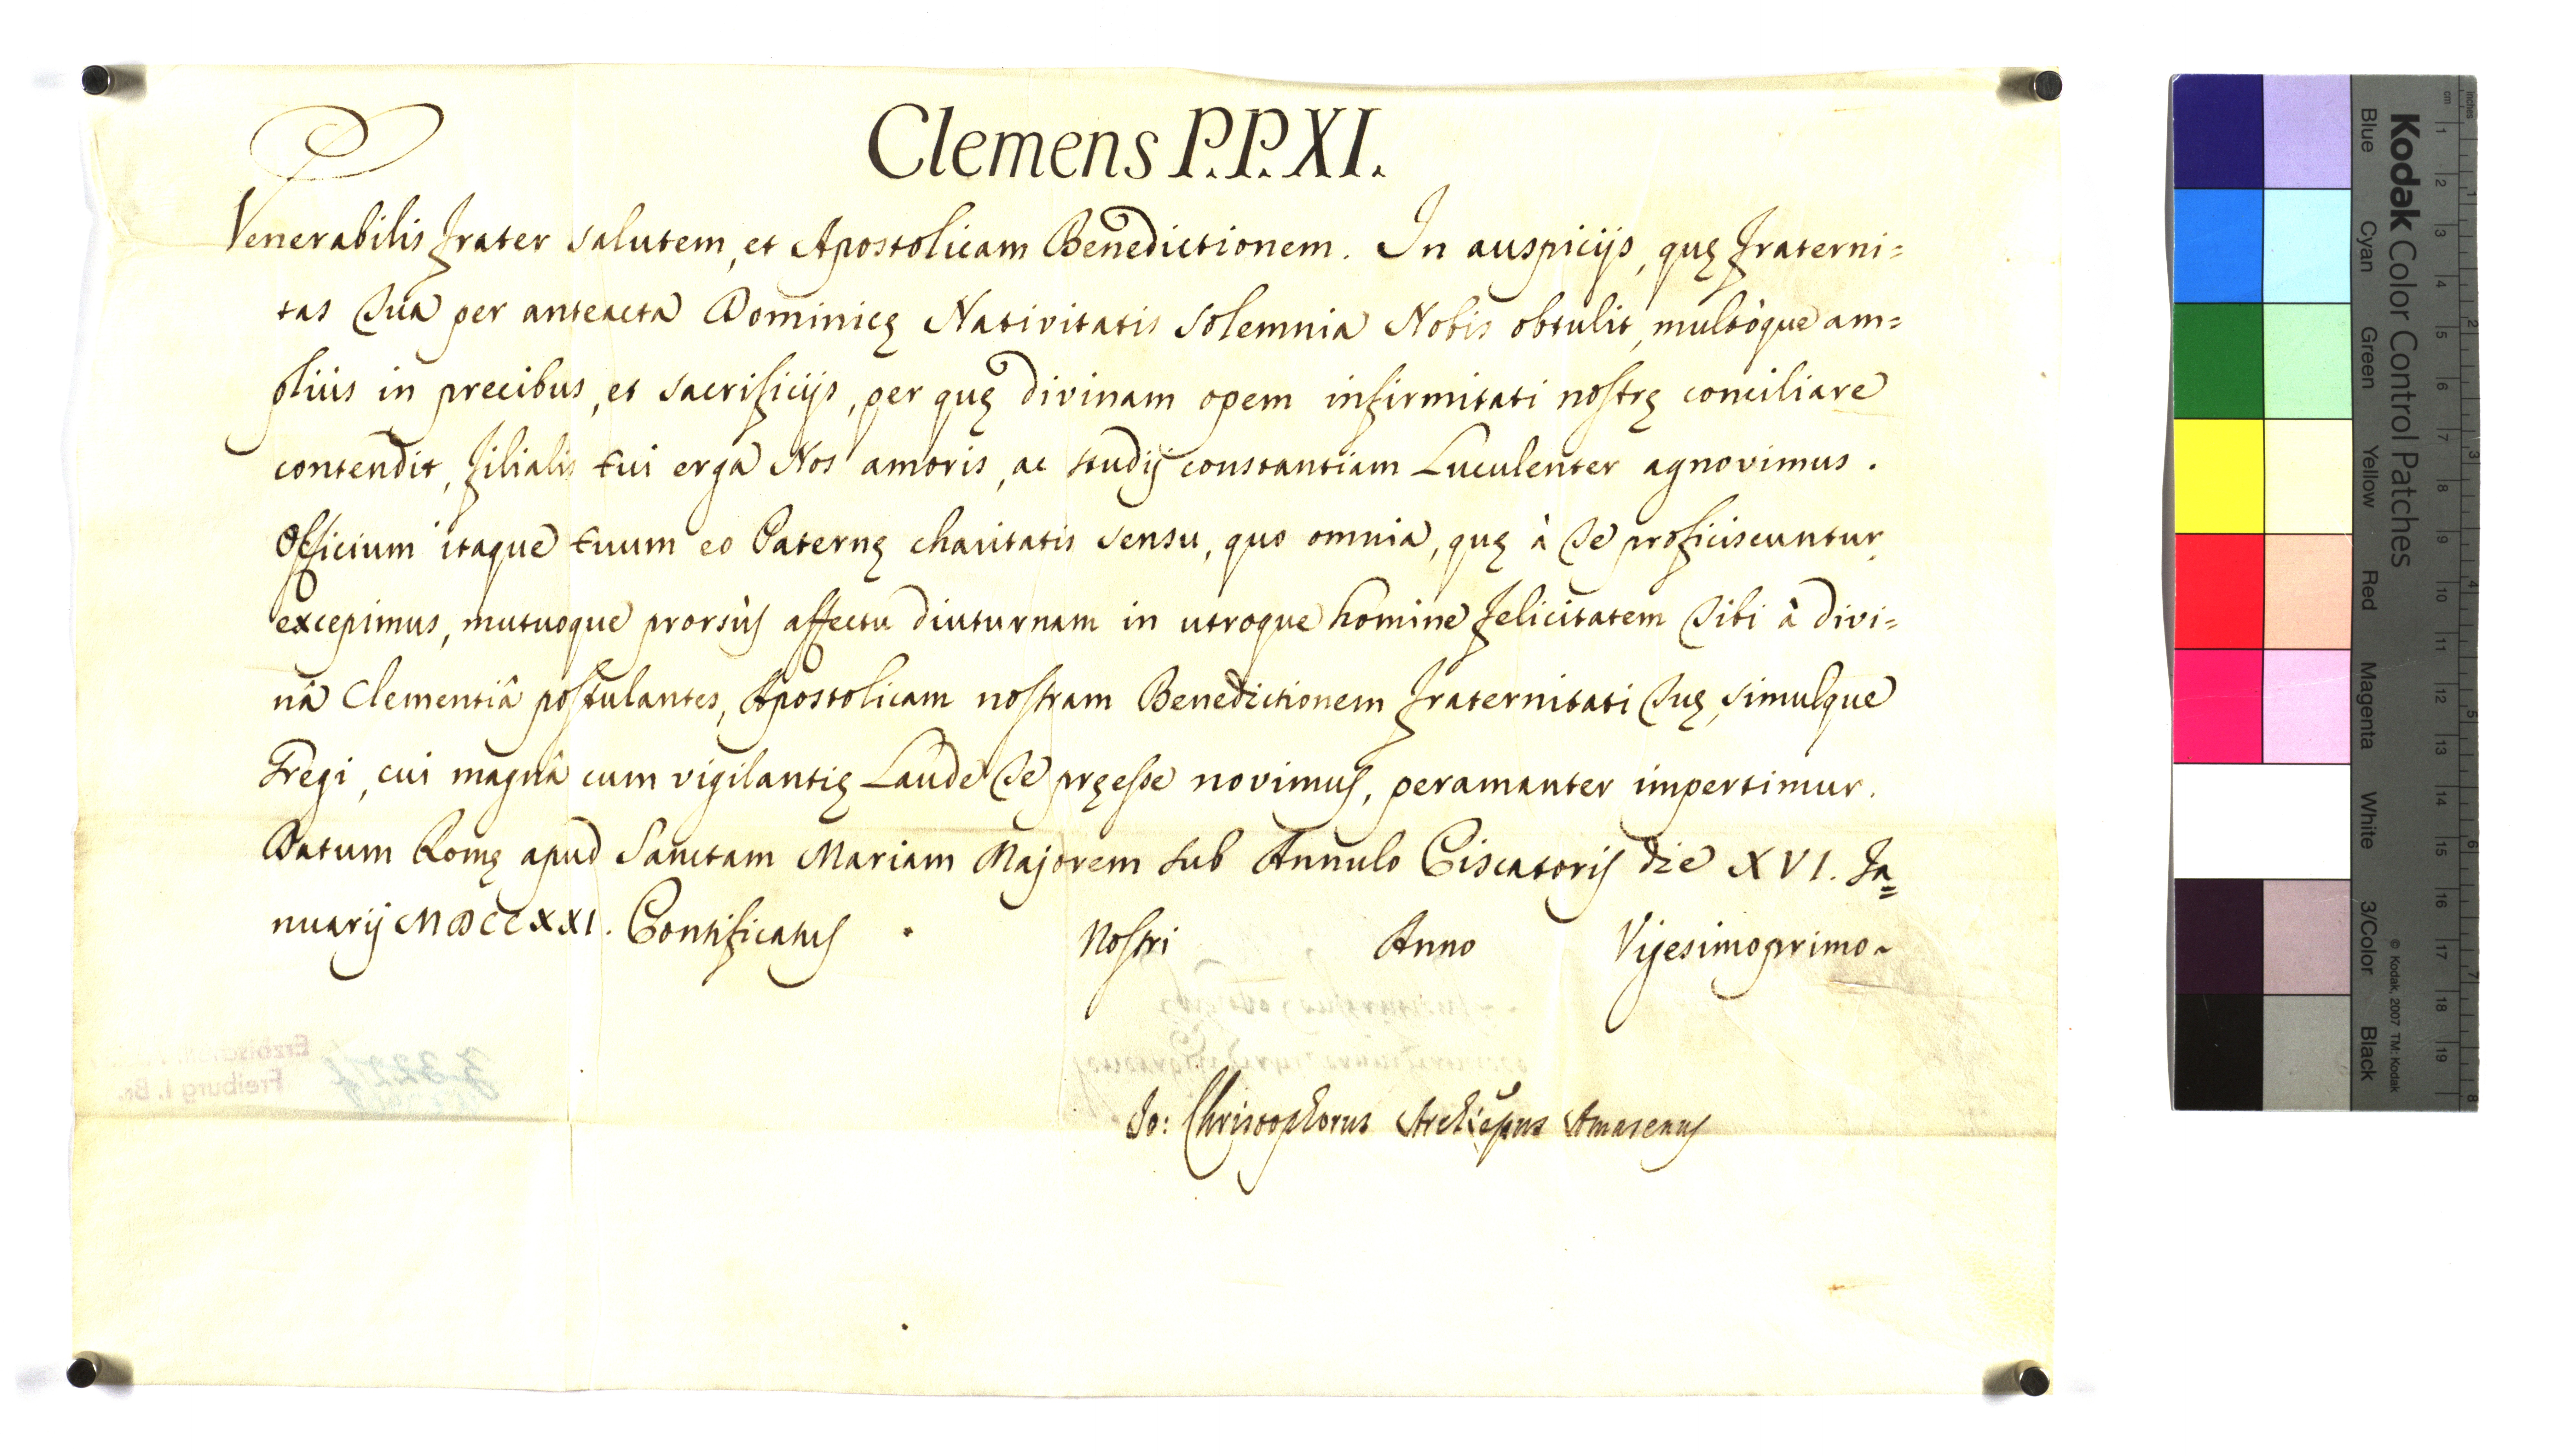 Clemens P.P. XI.
Venerabilis Frater salutem, et Apostolicam Benedictionem. In auspicijs, quę Fraterni=
tas Tua per anteacta Dominicę Nativitatis solemnia Nobis obtulit, multòque am=
pliùs in precibus, et sacrificijs, per quę divinam opem infirmitati nostrę conciliare
contendit, filialis tui erga Nos amoris, ac studij constantiam Luculenter agnovimus.
Officium itaque tuum eo Paternę charitatis sensu, quo omnia, quę à Te proficiscuntur,
excepimus, mutuoque prorsùs affectu diuturnam in utroque homine felicitatem Tibi à divi=
nâ Clementiâ postulantes, Apostolicam nostram Benedictionem Fraternitati Tuę, simulque
Gregi, cui magnâ cum vigilantię Laude Te pręesse novimus, peramanter impertimur.
Datum Romę apud Sanctam Mariam Majorem sub Annulo Piscatoris die XVI. Ja=
nuarij MDCCXXI. Pontificatus Nostri Anno Vigesimoprimo~
Jo: Christophorus Archiepus Amasenus
Erzbischöfl.
Freiburg i. Br.
Kodak Color Control Patches
Blue Cyan Green Yellow Red Magenta White 3/Color Black
© Kodak, 2007 TM: Kodak
cm 1 2 3 4 5 6 7 8 9 10 11 12 13 14 15 16 17 18 19
inches 1 2 3 4 5 6 7 8